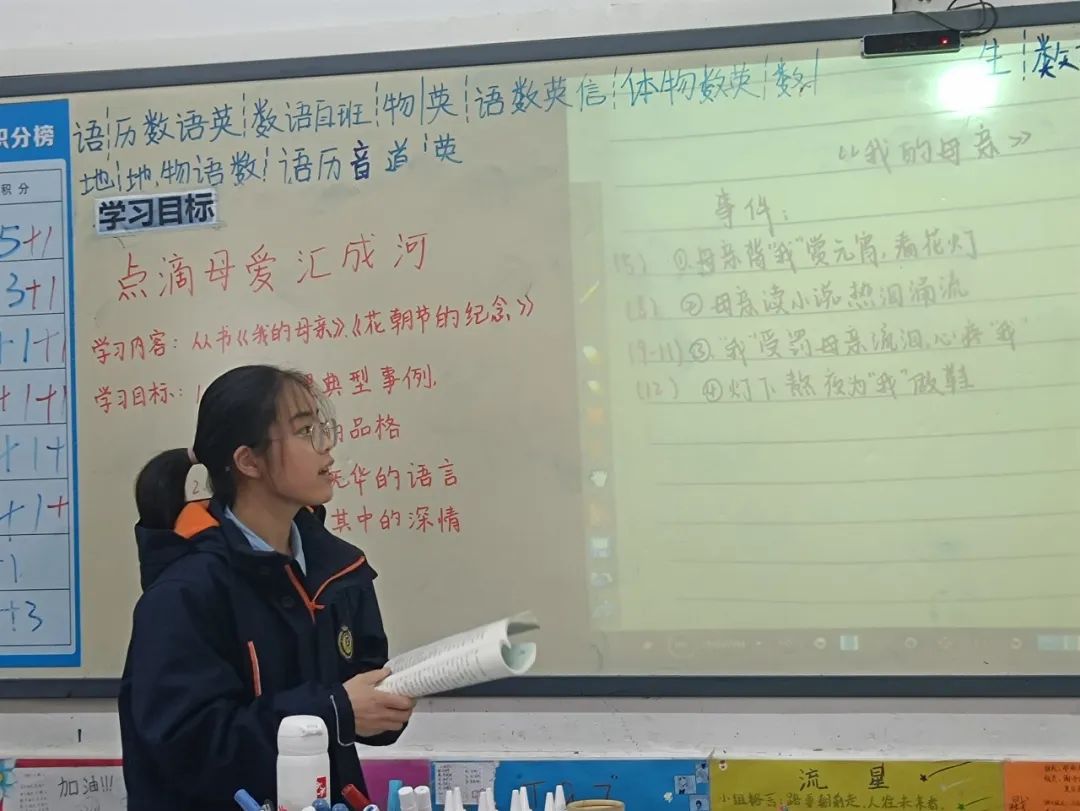 语 历数语英 数语自班 物 英 语数英信 体物数英 数
生 数
地 地物语数 语历音道 英
积分榜
积分
5+1
3+1
+1+1
+1+1
+1+
+1+
+3
学习目标
点滴母爱汇成河
学习内容：从书《我的母亲》、《花朝节的纪念》
学习目标：
典型事例，
品格
无华的语言
其中的深情
《我的母亲》
事件：
(5) ①母亲背“我”赏元宵，看花灯
(8) ②母亲读小说热泪涌流
(9-11) ③“我”受罚母亲流泪，心疼“我”
(12) ④灯下熬夜为“我”做鞋
加油!!!
流星
小组格言：